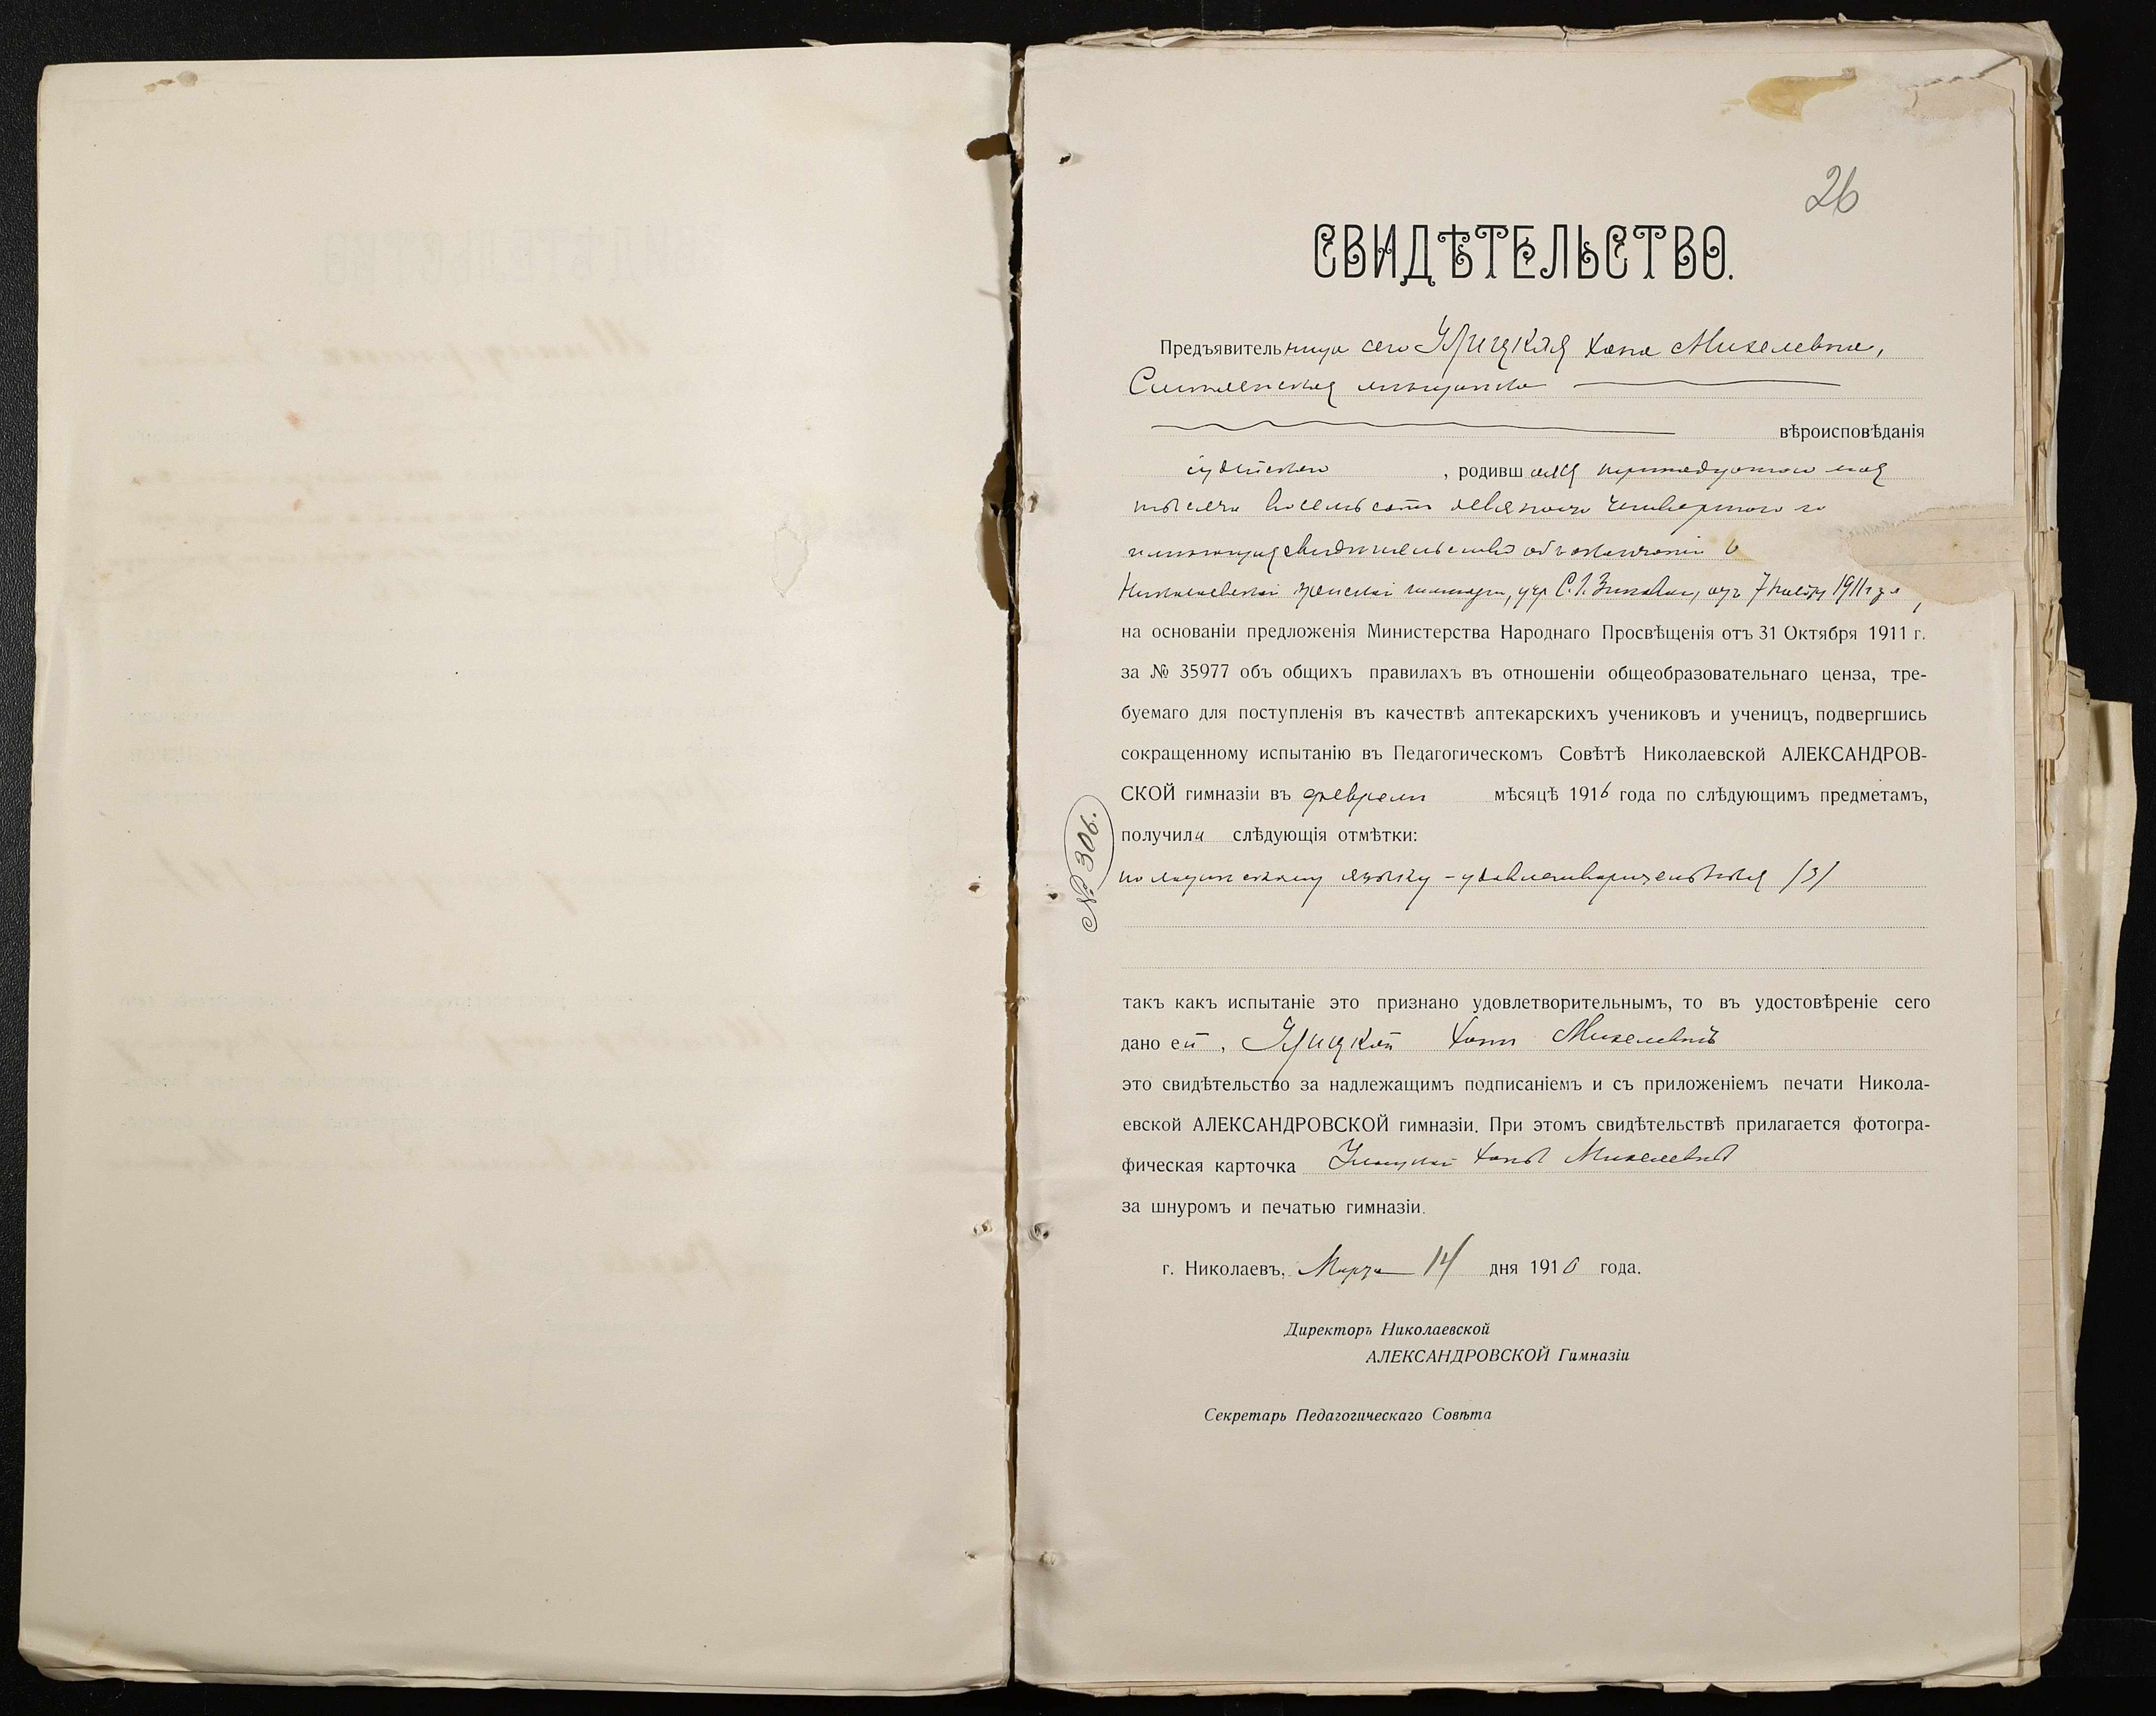 26
СВИДѢТЕЛЬСТВО.
Предъявительница сего Улицкая Хана Михелевна,
мѣщанка
вѣроисповѣданія
іудейскаго, родившаяся тринадцатаго мая
тысяча восемьсотъ девяносто четвертаго го
имѣющая свидѣтельство объ окончаніи
Николаевской женской гимназіи, учр. С. І. отъ 7 1911 года,
на основаніи предложенія Министерства Народнаго Просвѣщенія отъ 31 Октября 1911 г.
за № 35977 объ общихъ правилахъ въ отношеніи общеобразовательнаго ценза, тре-
буемаго для поступленія въ качествѣ аптекарскихъ учениковъ и ученицъ, подвергшись
сокращенному испытанію въ Педагогическомъ Совѣтѣ Николаевской АЛЕКСАНДРОВ-
СКОЙ гимназіи въ февралѣ мѣсяцѣ 1916 года по слѣдующимъ предметамъ,
получила слѣдующія отмѣтки:
№ 306.
по латинскому языку – удовлетворительная /3/
такъ какъ испытаніе это признано удовлетворительнымъ, то въ удостовѣреніе сего
дано ей, Улицкой Ханѣ Михелевнѣ
это свидѣтельство за надлежащимъ подписаніемъ и съ приложеніемъ печати Никола-
евской АЛЕКСАНДРОВСКОЙ гимназіи. При этомъ свидѣтельствѣ прилагается фотогра-
фическая карточка Улицкой Ханы Михелевны
за шнуромъ и печатью гимназіи.
г. Николаевъ, Марта 14 дня 1916 года.
Директоръ Николаевской
АЛЕКСАНДРОВСКОЙ Гимназіи
Секретарь Педагогическаго Совѣта